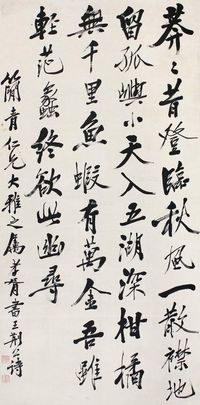 莽〻昔登臨秋風一散襟地
留孤嶼小天入五湖深柑橘
無千里魚蝦有萬金吾雖
輕范蠡終欲此幽尋
簡青仁兄大雅之屬 孝胥書王荊公詩